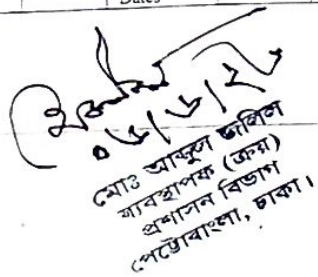 Dates
মোঃ আব্দুল জলিল
ব্যবস্থাপক (ক্রয়)
প্রশাসন বিভাগ
পেট্রোবাংলা, ঢাকা।